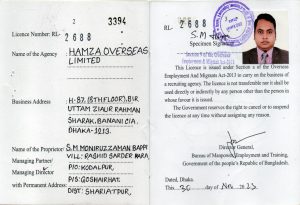 2
3394
Licence Number: RL- 2688
Name of the Agency : HAMZA OVERSEAS
LIMITED
Business Address : H-87, (5TH FLOOR), BIR
UTTAM ZIAUR RAHMAN
SHARAK, BANANI C/A,
DHAKA-1213.
Name of the Proprietor S.M MONIRUZZAMAN BAPPI
Managing Partner VILL: RASHID SARDER
Managing Director P/O: KODALPUR,
with Permanent Address : P/S: GOSHAIRHAT
DIST: SHARIATPUR,
RL- 2688
S.M
Specimen Signature
This Licence is issued under Section 11 of the Overseas
Employment And Migrants Act-2013 to carry on the business of
a recruiting agency. The licence is not transferable nor it shall be
used directly or indirectly by any person other than the person
whose favour it is issued.
The Government reserves the right to cancel or to suspend
the licence at any time without assigning any reason.
Director General,
Bureau of Manpower, Employment and Training,
Government of the people's Republic of Bangladesh.
Dated, Dhaka
This 30 day of Nov 2023